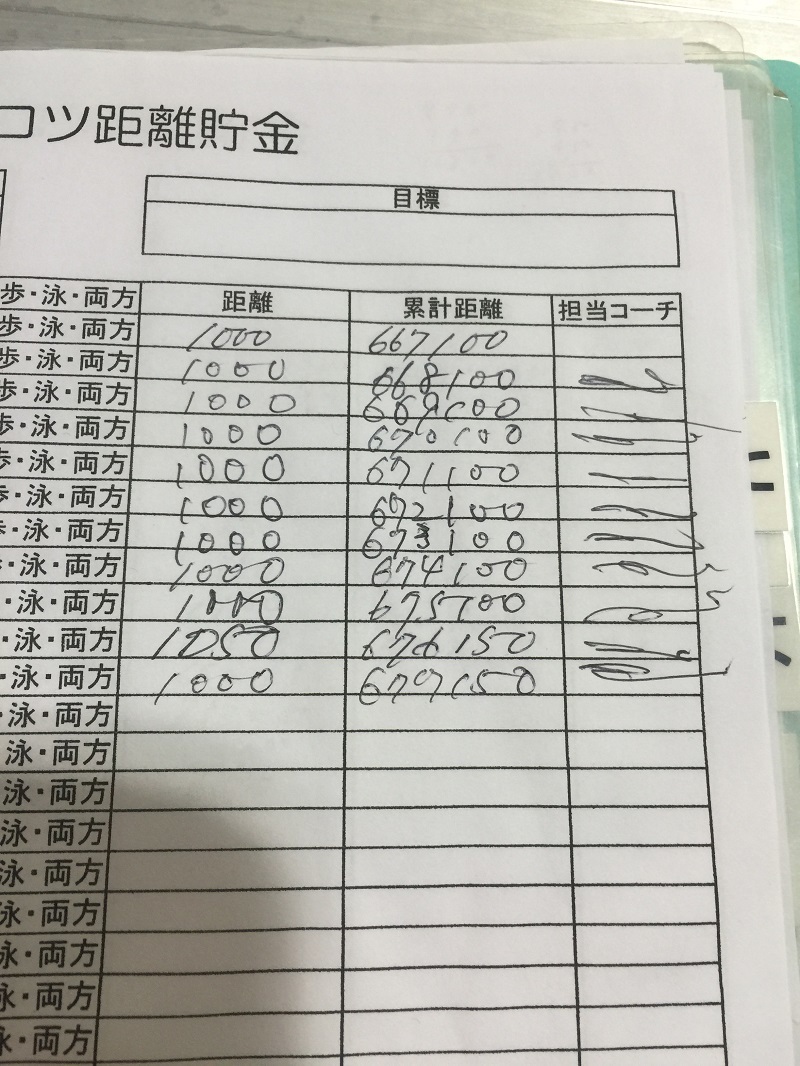 コツ距離貯金
目標
歩・泳・両方 距離 累計距離 担当コーチ
歩・泳・両方 1000 667100
歩・泳・両方 1000 668100
歩・泳・両方 1000 669100
歩・泳・両方 1000 670100
歩・泳・両方 1000 671100
歩・泳・両方 1000 672100
歩・泳・両方 1000 673100
・泳・両方 1000 674100
・泳・両方 1000 675100
・泳・両方 1050 676150
・泳・両方 1000 677150
・泳・両方
泳・両方
泳・両方
泳・両方
泳・両方
泳・両方
泳・両方
泳・両方
泳・両方